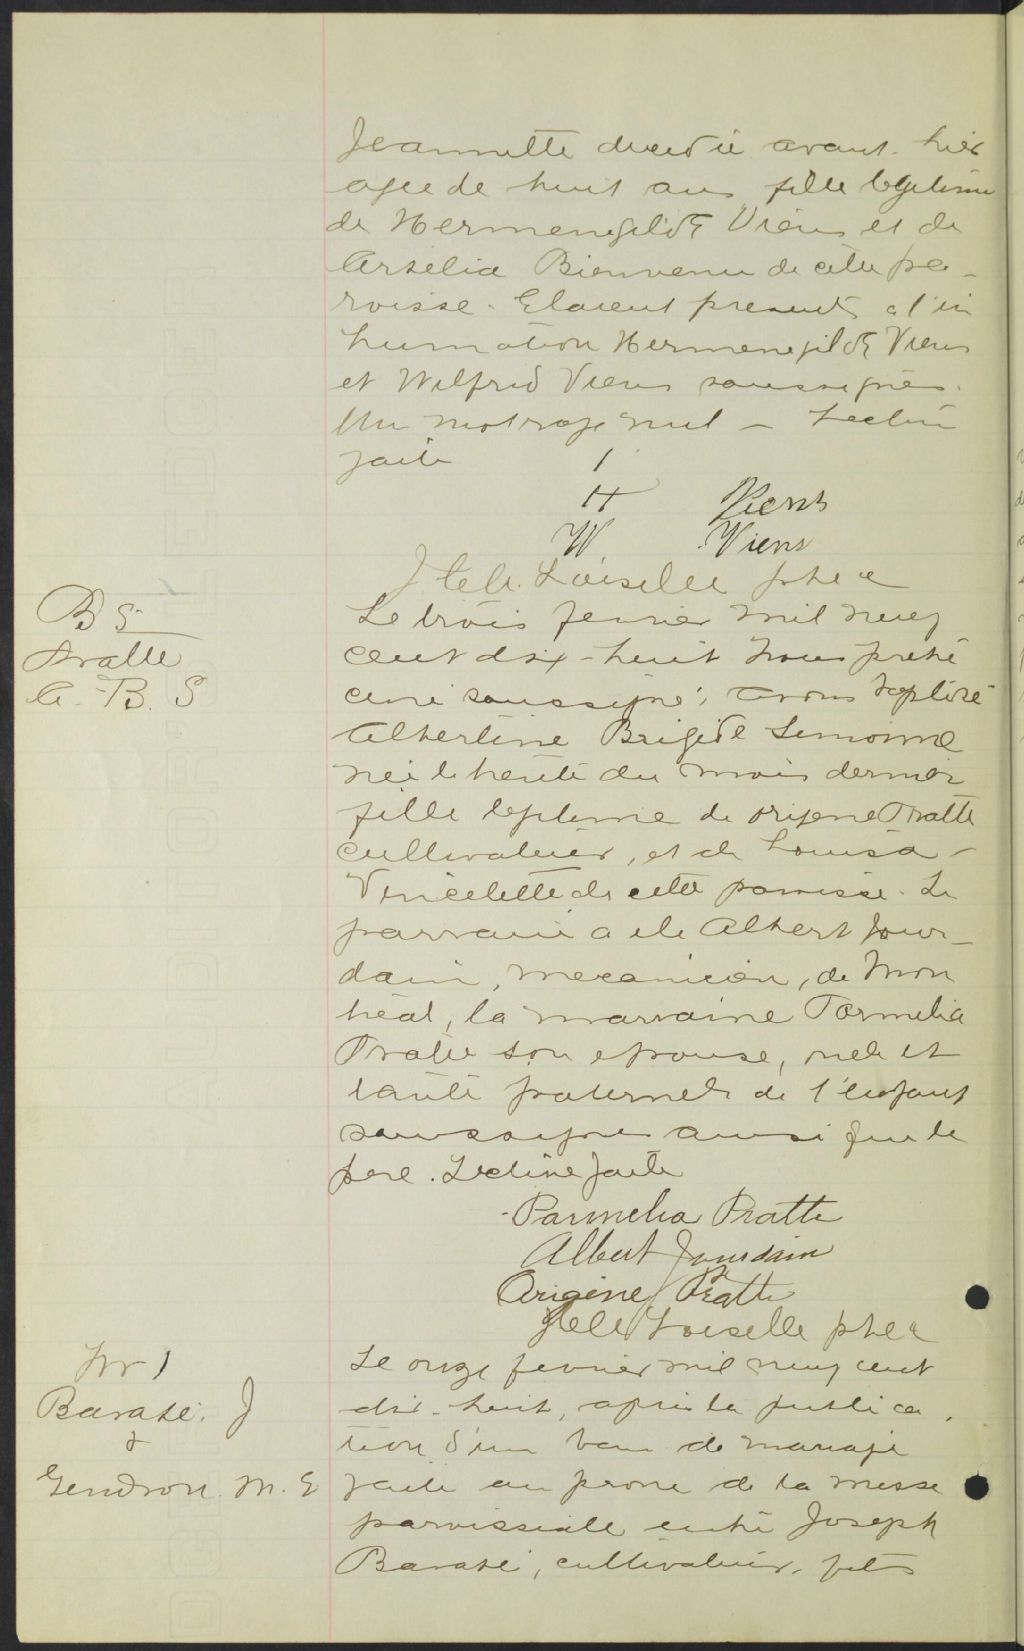 Jeannette decedée avant-hier
agée de huit ans fille legitime
de Hermenegilde Viens et de
Arselia Bienvenu de cette pa-
roisse. Etaient presents a l'in
humation Hermenegilde Viens
et Wilfrid Viens soussignés.
Un mot rayé nul - Lecture
faite
H Viens
W. Viens
J Loiselle ptre c
B 5
Pratte
A. B. S
Le trois fevrier mil neuf
cent dix-huit nous pretre
curé soussigné, avons baptisé
Albertine Brigide Simonne
née le trente du mois dernier
fille legitime de Origene Pratte
cultivateur, et de Louisa
Vincelette de cette paroisse. Le
parrain a ete Albert Jour-
dain, mecanicien, de Mon
treal, la marraine Parmelia
Pratte son epouse, oncle et
tante paternels de l'enfant
soussignes ainsi que le
pere. Lecture faite
Parmelia Pratte
Albert Jourdain
Origène Pratte
Loiselle ptre c
M 1
Barasé. J
&
Gendron M. E
Le onze fevrier mil neuf cent
dix-huit, apres la publica
tion d'un ban de mariage
faite au prone de la messe
paroissiale entre Joseph
Barasé, cultivateur, fils